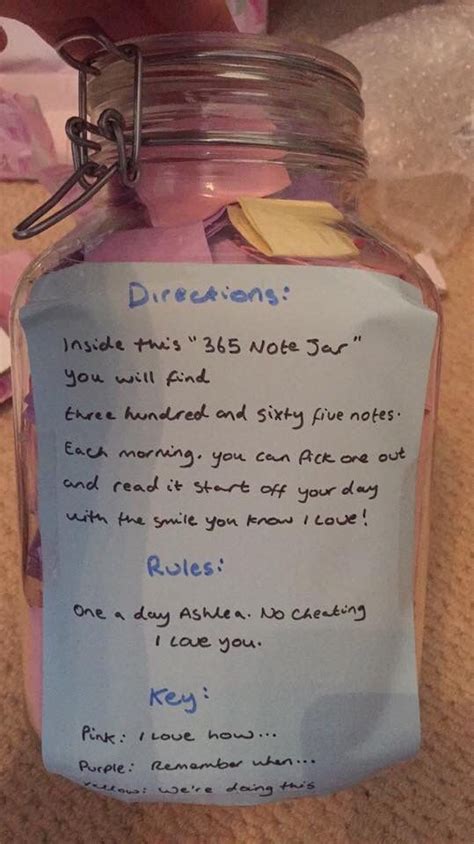 Directions:
Inside this "365 Note Jar"
you will find
three hundred and sixty five notes.
Each morning. you can pick one out
and read it start off your day
with the smile you know I love!
Rules:
One a day Ashlea. No Cheating
I love you.
Key:
Pink: I love how...
Purple: Remember when...
Yellow: We're doing this